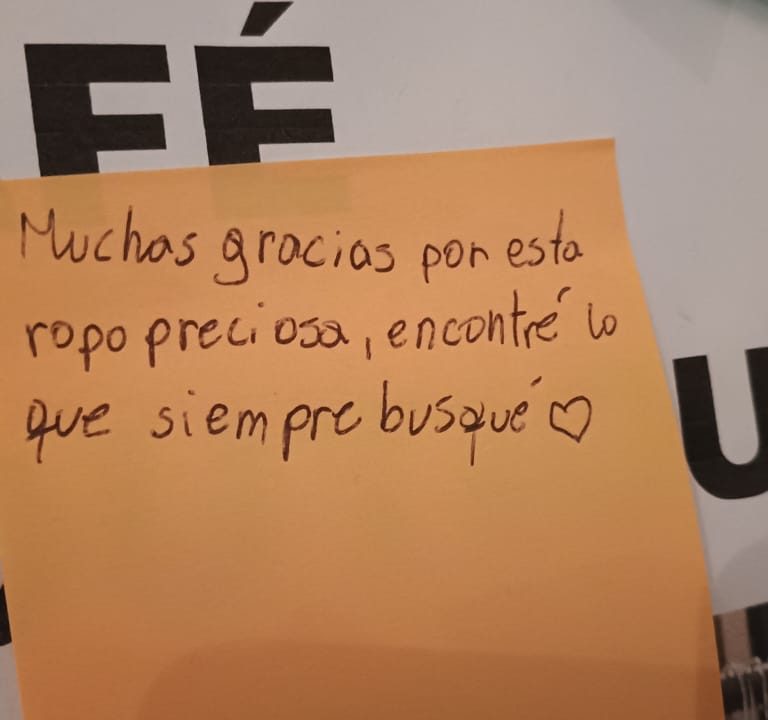 FÉ
Muchas gracias por esta
ropa preciosa, encontré lo
que siempre busqué ♡
U